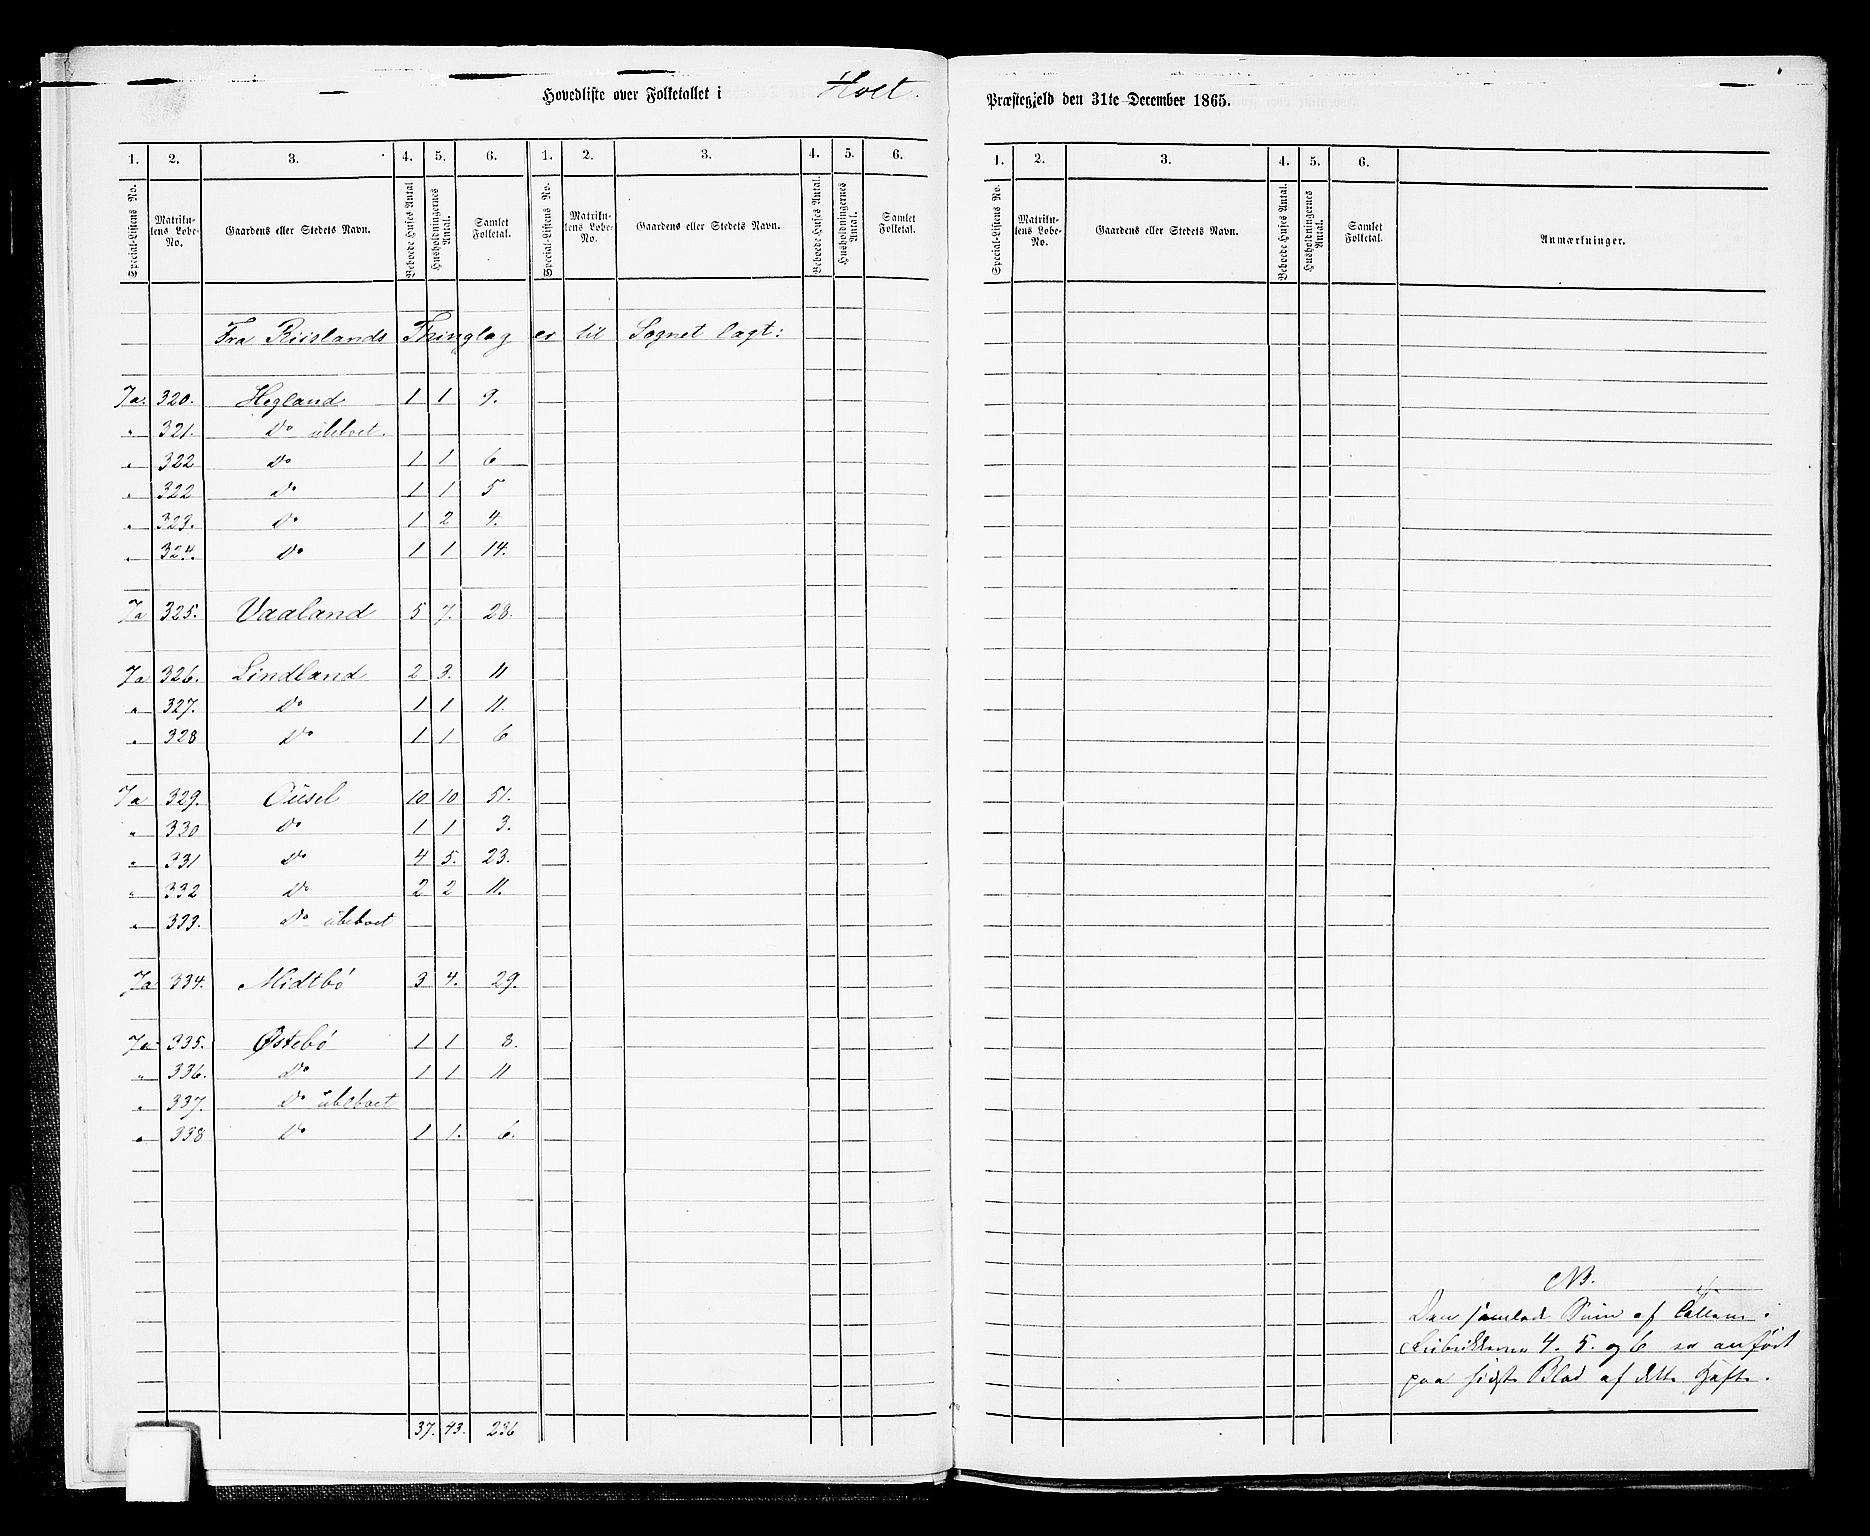 Hovedliste over Folketallet i Holt.
1. 2. 3. 4. 5. 6. 1. 2. 3. 4. 5. 6.
Special-Listens No. Matrikulens Løbe-No. Gaardens eller Stedets Navn. Beboede Huses Antal Husholdningernes Antal. Samlet Folketal. Special-Listens No. Matrikulens Løbe-No. Gaardens eller Stedets Navn. Beboede Huses Antal. Husholdningernes Antal. Samlet Folketal.
Fra Riislands Thinglag er til Sognet lagt:
7a. 320. Hegland 1 1 9.
" 321. Do ubeboet.
" 322 Do 1 1 6
" 322 Do 1 1 5
" 323. Do 1 2 4.
" 324. Do 1 1 14.
7a 325. Vaaland 5 7. 28.
7a 326. Lindland 2 3. 11
" 327. Do 1 1 11.
" 328 Do 1 1 6
7a 329. Ousel 10 10 51.
" 330 Do 1 1 3.
" 331 Do 4 5. 23.
" 332 Do 2 2 11.
" 333. Do ubeboet
7a 334. Midtbö 3 4. 29.
7a 335. Østebö 1 1 8.
" 336. Do 1 1 11
" 337. Do ubeboet
" 338 Do 1 1. 6.
37. 43. 236
Præstegjeld den 31te December 1865.
1. 2. 3. 4. 5. 6.
Special-Listens No. Matrikulens Løbe-No. Gaardens eller Stedets Navn. Beboede Huses Antal. Husholdningernes Antal. Samlet Folketal. Anmærkninger.
NB.
Den samlede Sum af Tallene i
Rubrikkerne 4. 5. og 6 er anført
paa sidste Blad af dette Hefte.